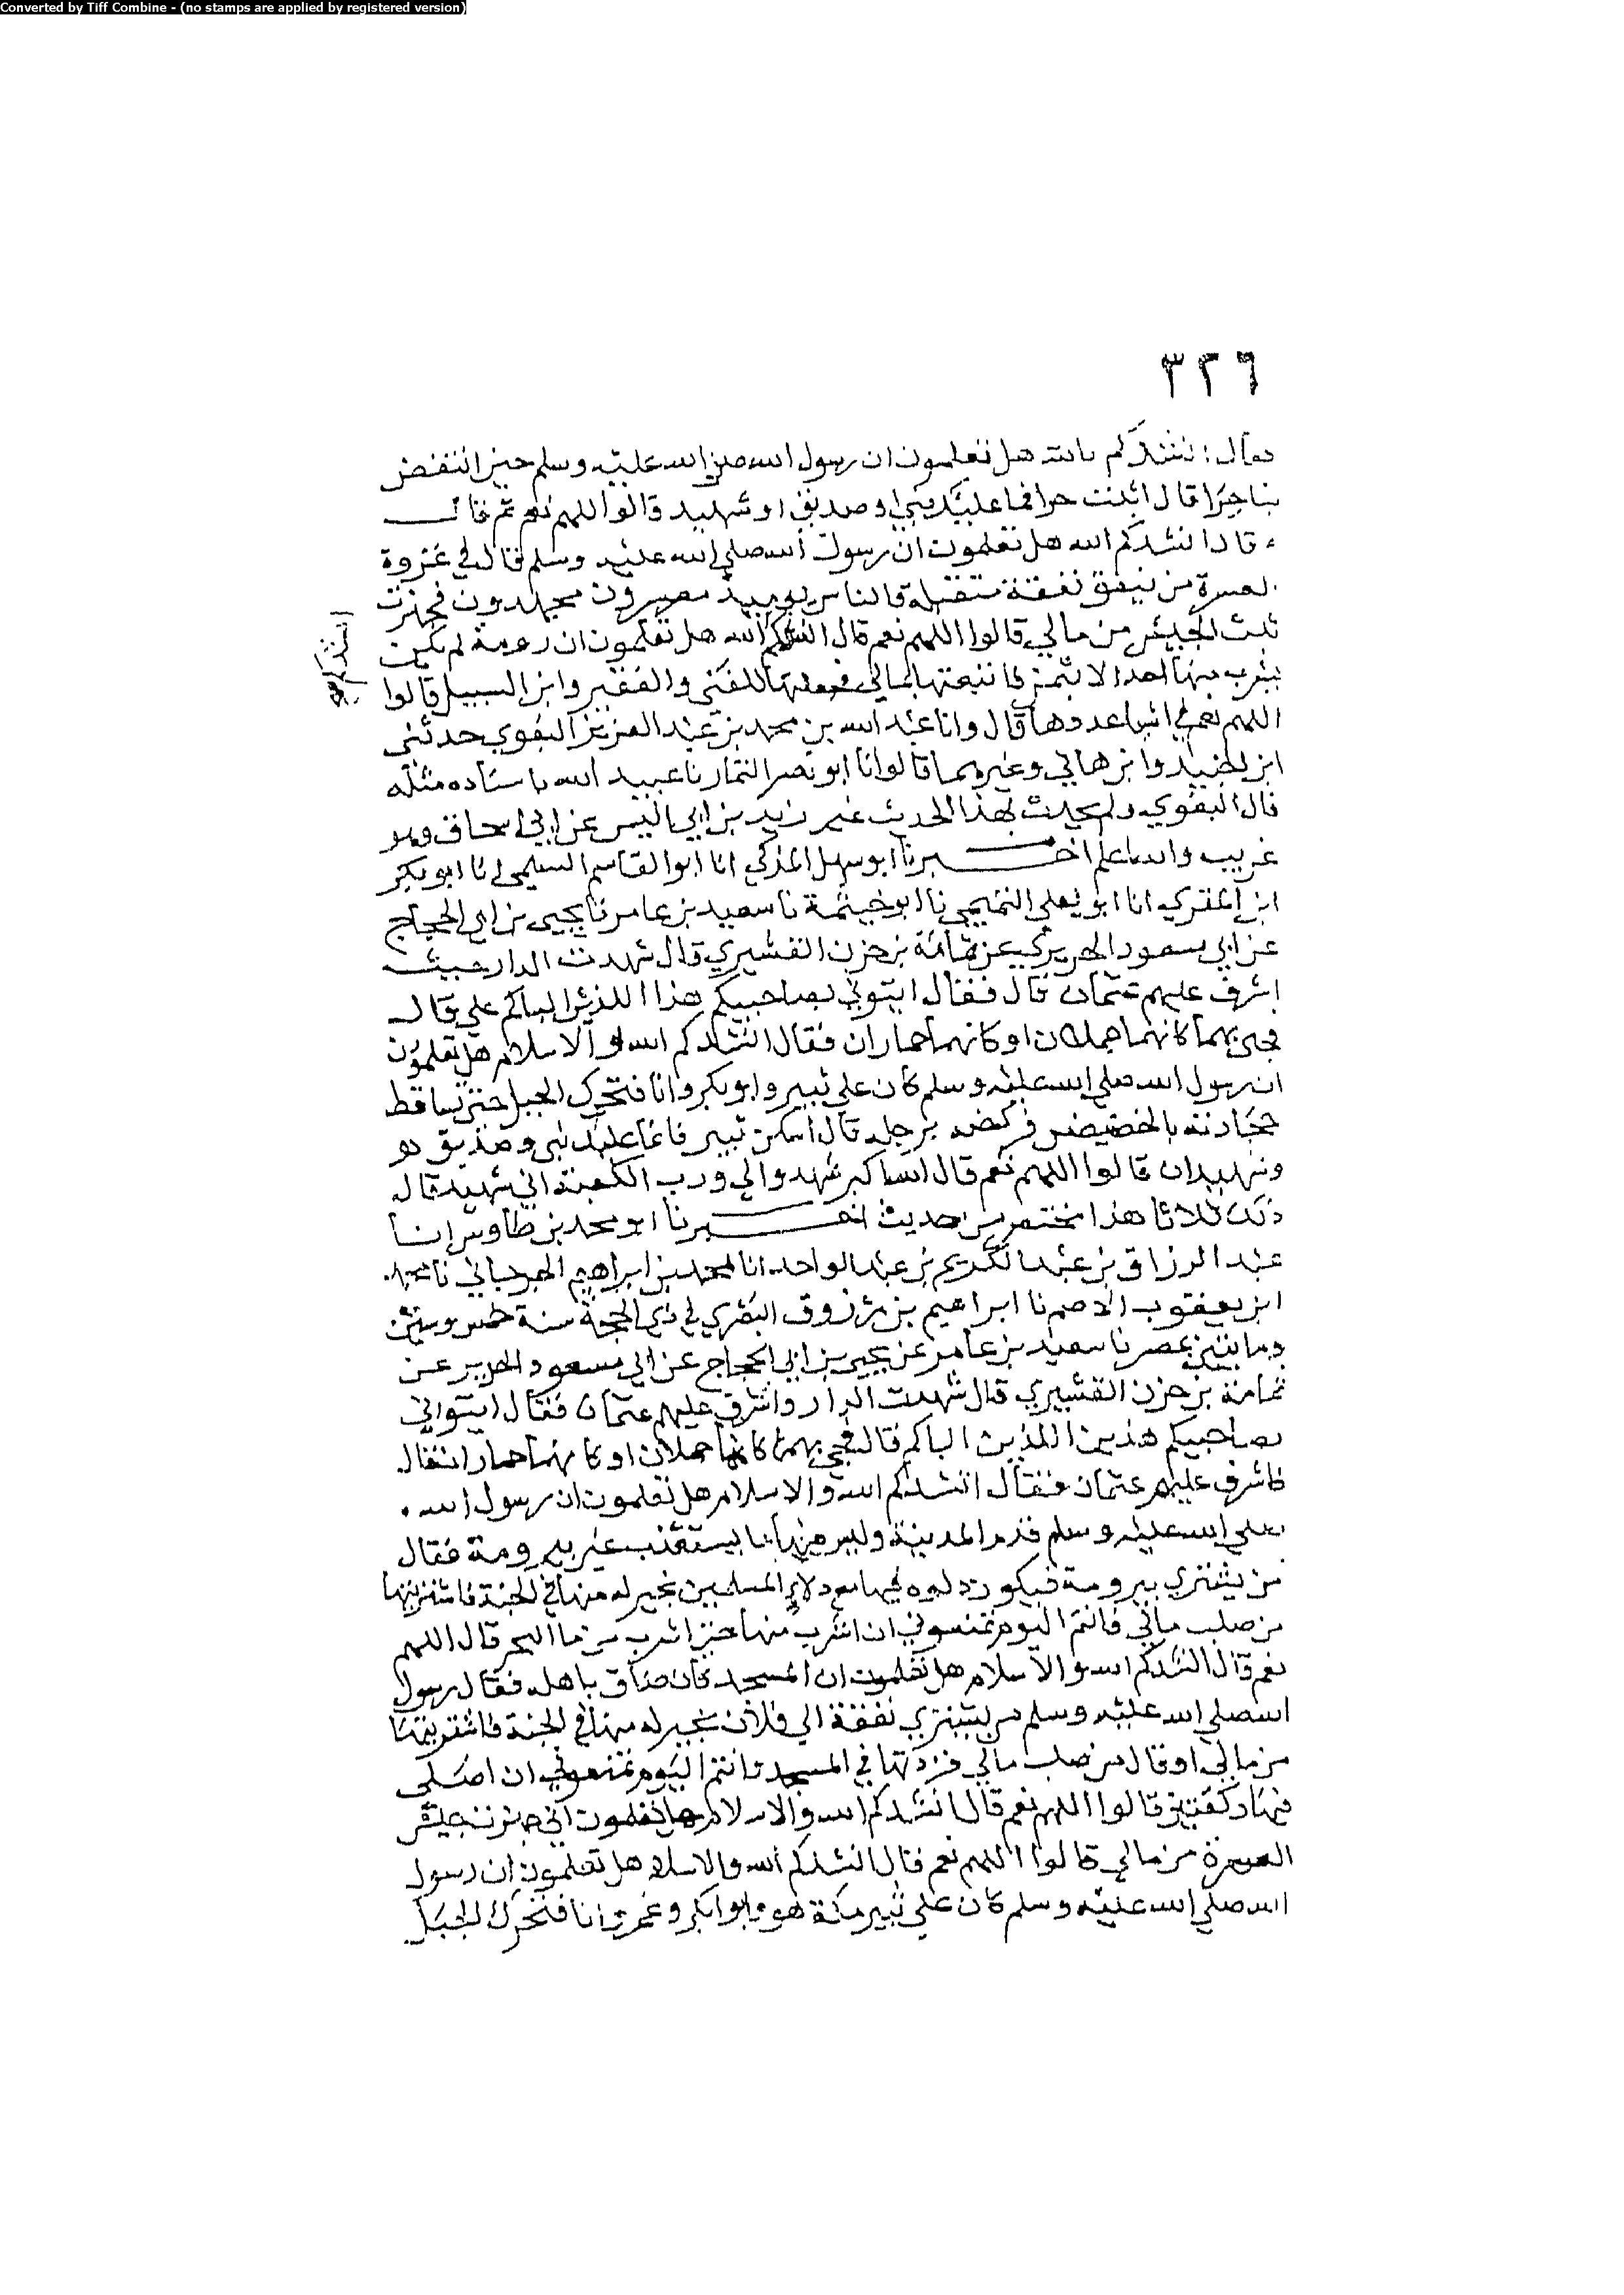 Converted by Tiff Combine - (no stamps are applied by registered version)
٣٢٦
فقال انشدكم بالله هل تعلمون ان رسول الله صلى الله عليه وسلم حين انتفض
بنا حرا قال اثبت حرا فما عليك نبي او صديق او شهيد قالوا اللهم نعم ثم قال
انشدكم الله هل تعلمون ان رسول الله صلى الله عليه وسلم قال في غزوة
العسرة من ينفق نفقة متقبلة والناس يوميذ معسرون مجهدون فجهزت
ثلث الجيش من مالي قالوا اللهم نعم قال انشدكم الله هل تعلمون ان رومة لم يكن
انشدكم
يشرب منها احد الا بثمن فابتعتها بمالي فجعلتها للغني والفقير وابن السبيل قالوا
اللهم نعم في اشيا عددها قال وانا عبد الله بن محمد بن عبد العزيز البغوي حدثني
ابن وابن هاني وغيرهما قالوا نا ابو نصر التمار نا عبيد الله باسناده مثله
قال البغوي ولم يحدث بهذا الحديث غير زيد بن ابي انيس عن ابي اسحاق وهو
غريب والله اعلم اخبرنا ابو سهل المزكي انا ابو القاسم السلمي انا ابو بكر
ابن المقري انا ابو يعلى التميمي نا ابو خيثمة نا سعيد بن عامر نا يحيى بن ابي الحجاج
عن ابي مسعود الجريري عن ثمامة بن حزن القشيري قال شهدت الدار حيث
اشرف عليهم عثمان قال فقال ايتوني بصاحبيكم هذا اللذين الباكم علي قال
فجي بهما كانهما جملان او كانهما حماران فقال انشدكم الله والاسلام هل تعلمون
ان رسول الله صلى الله عليه وسلم كان على ثبير وابو بكر وانا فتحرك الجبل حتى تساقط
حجارته بالحضيض فركضه برجله قال اسكن ثبير فانما عليك نبي وصديق
وشهيدان قالوا اللهم نعم قال الله اكبر شهدوا لي ورب الكعبة اني شهيد قال
ذلك ثلاثا هذا مختصر من حديث اخبرنا ابو محمد بن طاوس انا
عبد الرزاق بن عبد الكريم بن عبد الواحد انا محمد بن ابراهيم الجرجاني نا محمد
ابن يعقوب الاصم نا ابراهيم بن مرزوق البصري في ذي الحجة سنة خمس وستين
ومايتين بمصر نا سعيد بن عامر عن يحيى بن ابي الحجاج عن ابي مسعود الجرير عن
ثمامة بن حزن القشيري قال شهدت الدار واشرف عليهم عثمان فقال ايتوني
بصاحبيكم هذين اللذين الباكم قال فجي بهما كانهما جملان او كانهما حماران فقال
فاشرف عليهم عثمان فقال انشدكم الله والاسلام هل تعلمون ان رسول الله
صلى الله عليه وسلم قدم المدينة وليس فيها ما يستعذب غير بير رومة فقال
من يشتري بير رومة فيكون دلوه فيها مع دلاء المسلمين بخير له منها في الجنة فاشتريتها
من صلب مالي فانتم اليوم تمنعوني ان اشرب منها حتى اشرب من ما البحر قال اللهم
نعم قال انشدكم الله والاسلام هل تعلمون ان المسجد كان ضاق باهله فقال رسول
الله صلى الله عليه وسلم من يشتري نفقة الي فلان بخير له منها في الجنة فاشتريتها
من مالي او قال من صلب مالي فزدتها في المسجد فانتم اليوم تمنعوني ان اصلي
فيها ركعتين قالوا اللهم نعم قال انشدكم الله والاسلام هل تعلمون اني جهزت جيش
العسرة من مالي قالوا اللهم نعم قال انشدكم الله والاسلام هل تعلمون ان رسول
الله صلى الله عليه وسلم كان على ثبير مكة هو وابو بكر وعمر وانا فتحرك الجبل